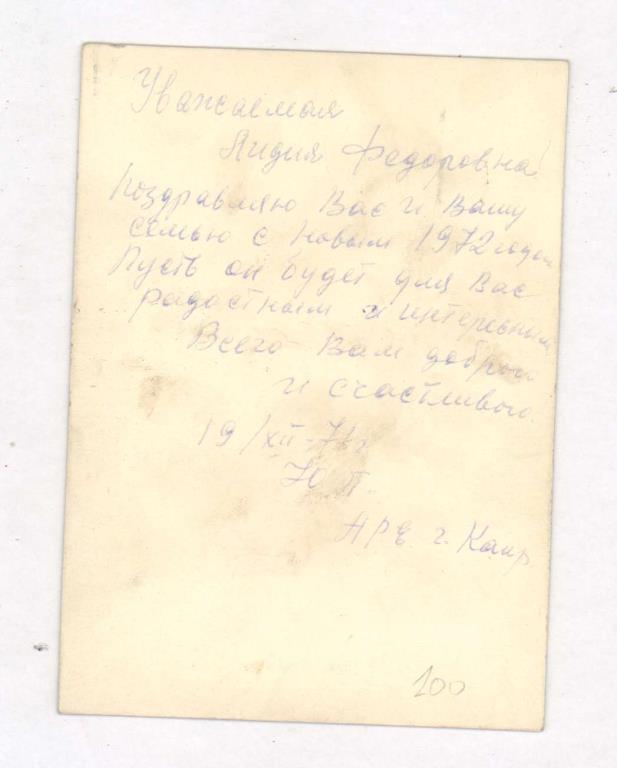 Уважаемая
Лидия Федоровна!
Поздравляю Вас и Вашу
семью с новым 1972 годом
Пусть он будет для Вас
радостным и интересным
Всего Вам доброго
и счастливого.
19/XII-71г
Ю П.
АРЕ г. Каир
100